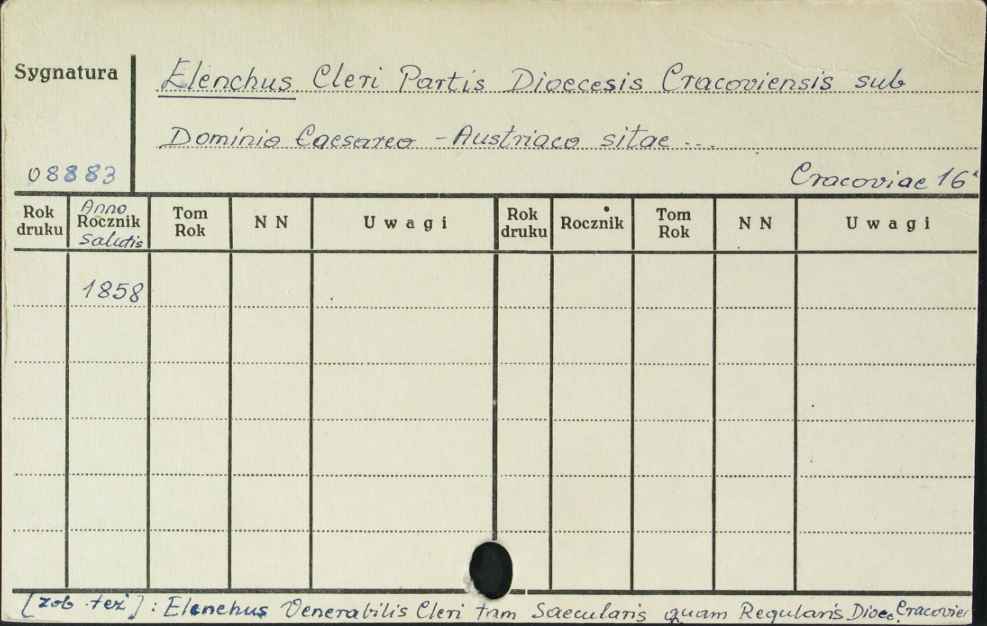 Sygnatura
Elenchus Cleri Partis Dioecesis Cracoviensis sub
Dominio Caesareo - Austriaco sitae ...
08883
Cracoviae 16°
Rok druku
Anno Rocznik Salutis
Tom Rok
N N
Uwagi
Rok druku
Rocznik
Tom Rok
N N
Uwagi
1858
[zob. też]: Elenchus Venerabilis Cleri tam Saecularis quam Regularis Dioec. Cracovien